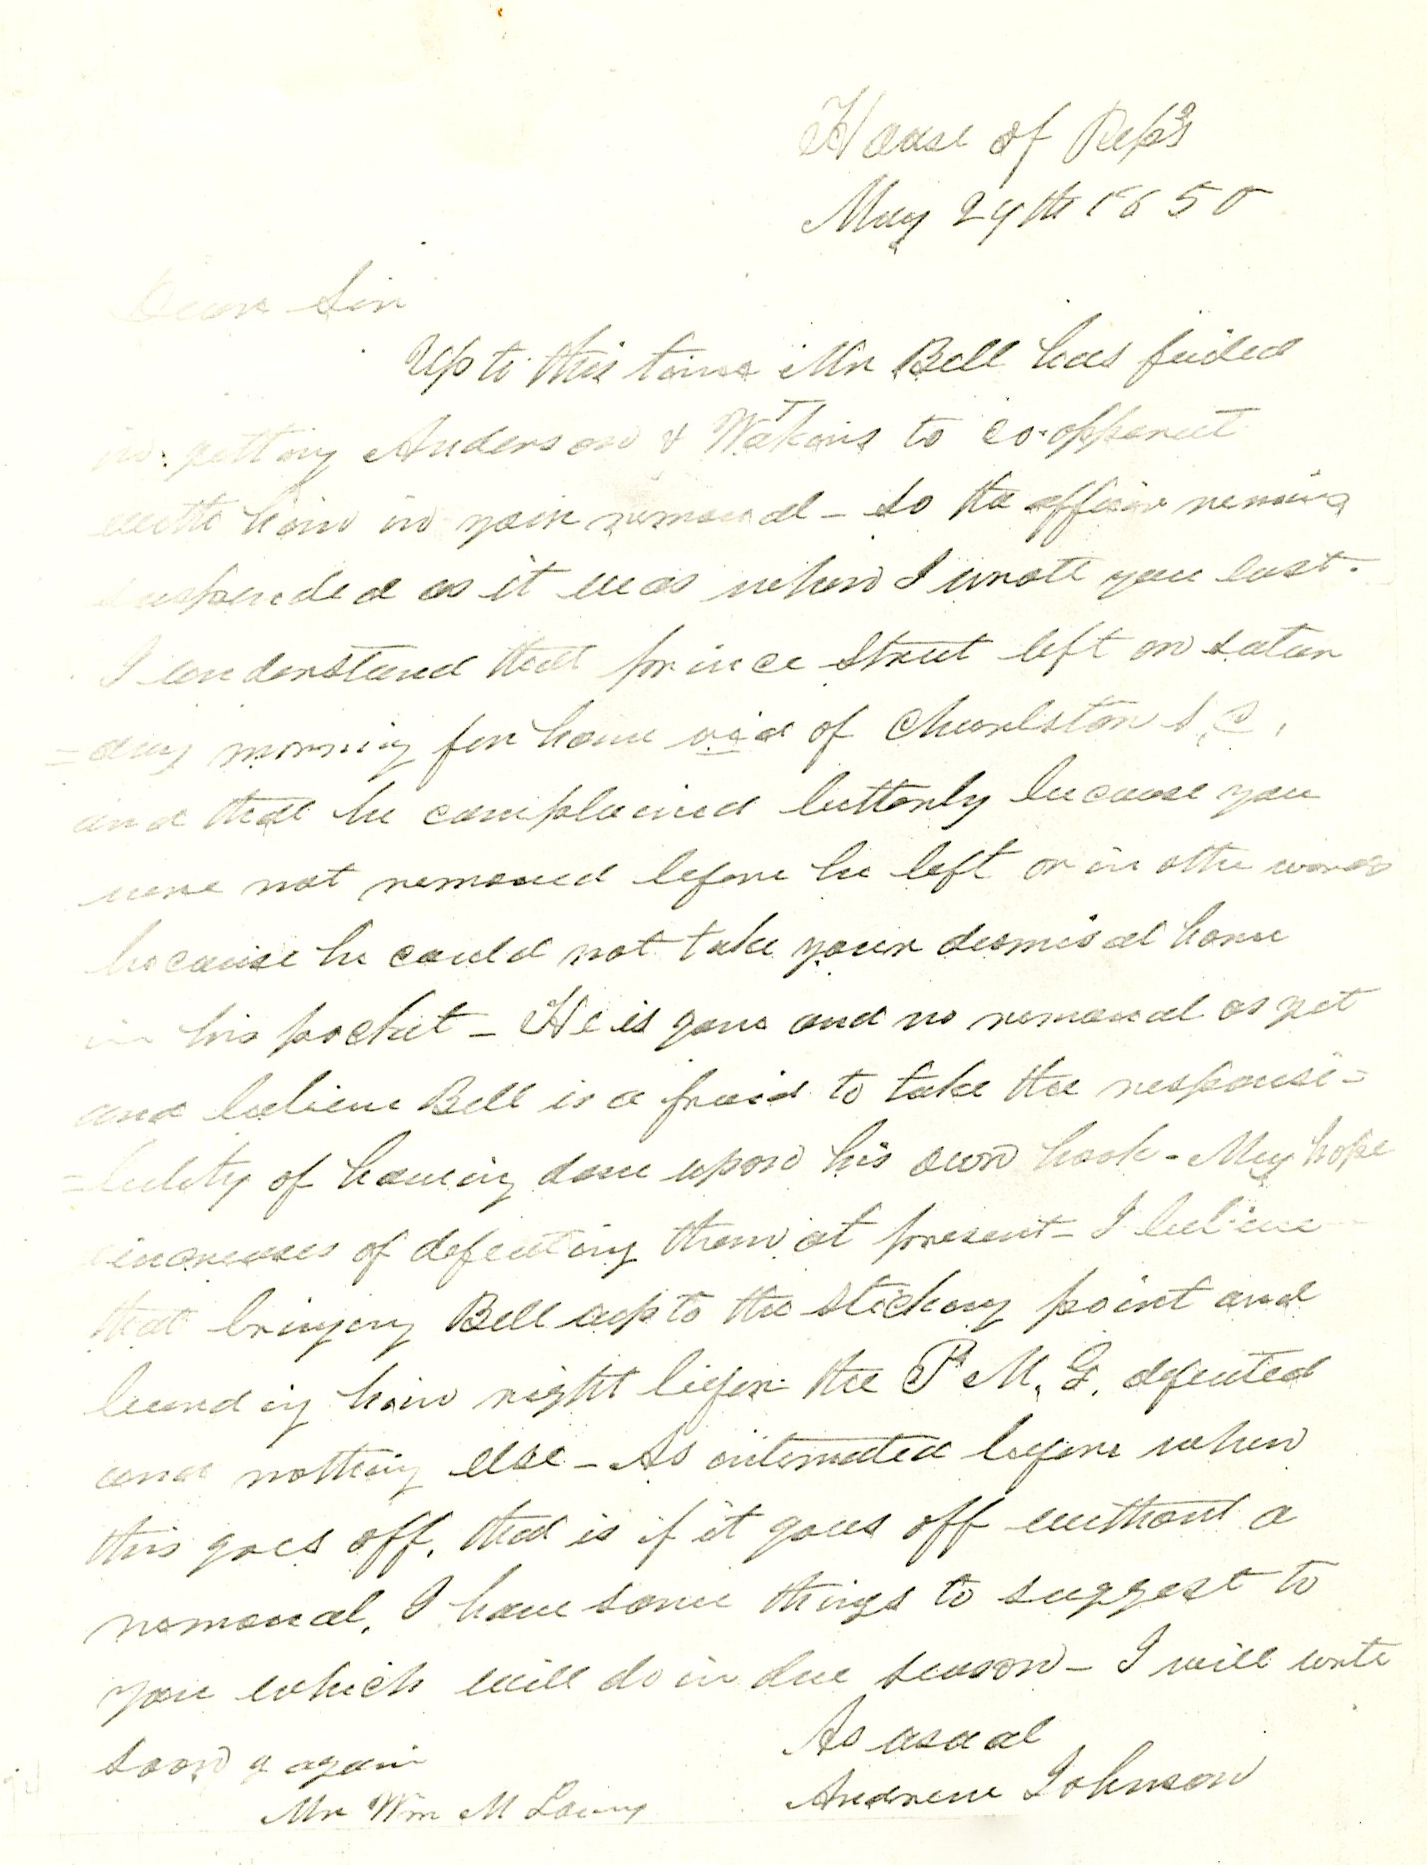 House of Reps
May 29th 1850
Dear Sir
Up to this time Mr Bell has failed
in getting Anderson & Watkins to co-opperate
with him in your removal – So the affair remains
suspended as it was when I wrote you last.
I understand that prince Street left on satur
=day morning for home via of Charlston S, C,
and that he complained bitterly because you
were not removed before he left or in othe words
because he could not take your dismisal home
in his pocket – He is gone and no removal as yet
and believe Bell is a fraid to take the responsi=
=bility of having done upon his own hook – My hope
increases of defeating them at present – I believe
that bringing Bell up to the sticking point and
him right before the P. M. G. defeated
and nothing else – As intimated before when
this goes off, that is if it goes off without a
removal, I have some things to suggest to
you which will do in due season – I will write
soon again
As usual
Andrew Johnson
Mr Wm M Lowry